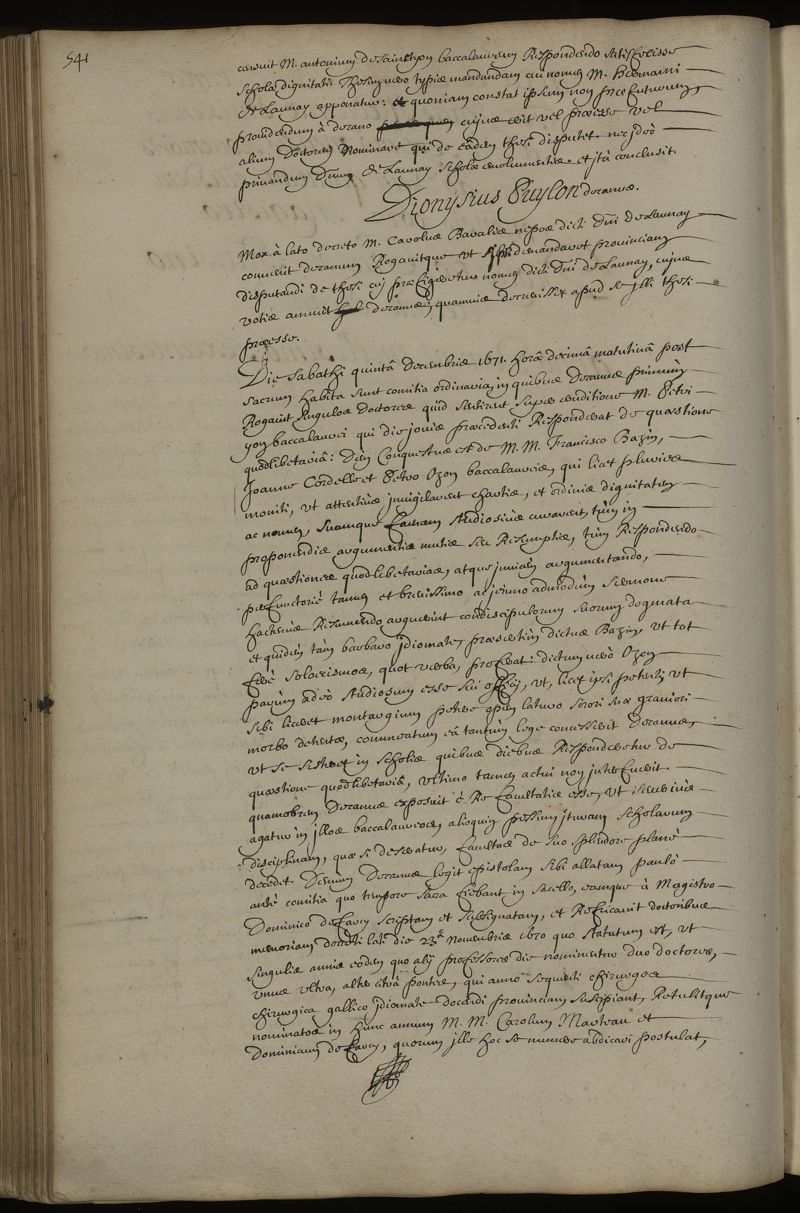 541
censuit M. antonium de Saintyon baccalaureum Respondendo satisfecisse
scholæ dignitati. Thesim vero typis mandandam cui nomen M.
de Launay apponatur: et quoniam constat ipsum non præfuturum,
providendum à decano cujus erit vel præesse vel
alium Doctorem Nominare qui de eadem thesi disputet. nec ideò
privandum Dnum de Launay scholæ emolumentis. et ità conclusit.
Dionysius Puylon decanus.
Mox à lato decreto M. Carolus Bavalis nepos dicti Dni de Launay
convenit decanum Rogavitque ut sibi demandaret provinciam
disputandi de thesi cui præfigeretur nomen dicti Dni de Launay, cujus
votis annuit decanus, quamvis decrevisset apud se illi thesi
præesse.
Die sabathi quintâ decembris 1671. horâ decimâ matutinâ post
sacrum habita sunt comitia ordinaria, in quibus Decanus primùm
Rogavit singulos doctores quid sentirent super eruditione M. Petri
yon baccalaurei qui die jovis præcedenti Respondebat de quæstione
quodlibetariâ: Dein Conquestus est de M. M. Francisco Bazin,
Joanne Cordelle et Petro Ozon baccalaureis, qui licet pluries
moniti, ut attentius invigilarent chartis, et ordinis dignitatem
ac nomen, suamque famam studiosius curarent, tùm in
proponendis argumentis mutis seu Resumptis, tùm Respondendo
ad quæstiones quodlibetarias, atque invicem argumentando,
perfunctoriè tamen et brevissimo ac jejuno admodùm sermone
hactenus Resumendo arguerint condiscipulorum suorum dogmata
et quidem tàm barbaro idiomate, præsertim dictus Bazin, ut tot
ferè solœcismos, quot verba, proferat: dictum verò Ozon
parùm adeò studiosum esse sui officij, ut, licet ipsi petenti ut
sibi liceret montargium petere opem laturo sorori suæ graviori
morbo detentæ, commeatum eâ tantùm lege concesserit Decanus,
ut se sisteret in scholis quibus diebus Responderetur de
quæstione quodlibetariâ, ultimo tamen actui non interfuerit.
quamobrem Decanus exposuit è Re facultatis esse, ut severius
agatur in illos baccalaureos, alioquin pessum ituram scholarum
disciplinam, quæ si deseratur, facultas de suo splendore planè
decedet. Demùm Decanus legit epistolam sibi allatam paulò
antè comitia quo tempore sacra fiebant in sacello, eamque à Magistro
Dominico de Farcy scriptam et subsignatam, et Refricavit doctoribus
memoriam decreti lati die 23â Novembris 1670 quo statutum est, ut
singulis annis eodem quo alij professores die nominentur duo doctores,
unus ultra, alter citrà pontes, qui anno sequenti chirurgos
chirurgica gallico idiomate docendi provinciam suscipiant, Retulitque
nominatos in hunc annum M. M. Carolum Marteau et
Dominicum de Farcy, quorum ille hoc se munere abdicari postulat,